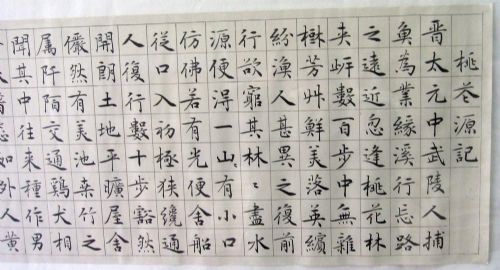 桃花源記
晉太元中武陵人捕
魚為業緣溪行忘路
之遠近忽逢桃花林
夾岸數百步中無雜
樹芳艸鮮美落英繽
紛漁人甚異之復前
行欲窮其林〻盡水
源便淂一山〻有小口
仿佛若有光便舍船
從口入初極狹纔通
人復行數十步豁然
開朗土地平曠屋舍
儼然有美池桒竹之
属阡陌交通鷄犬相
聞其中往来種作男
如外人黃